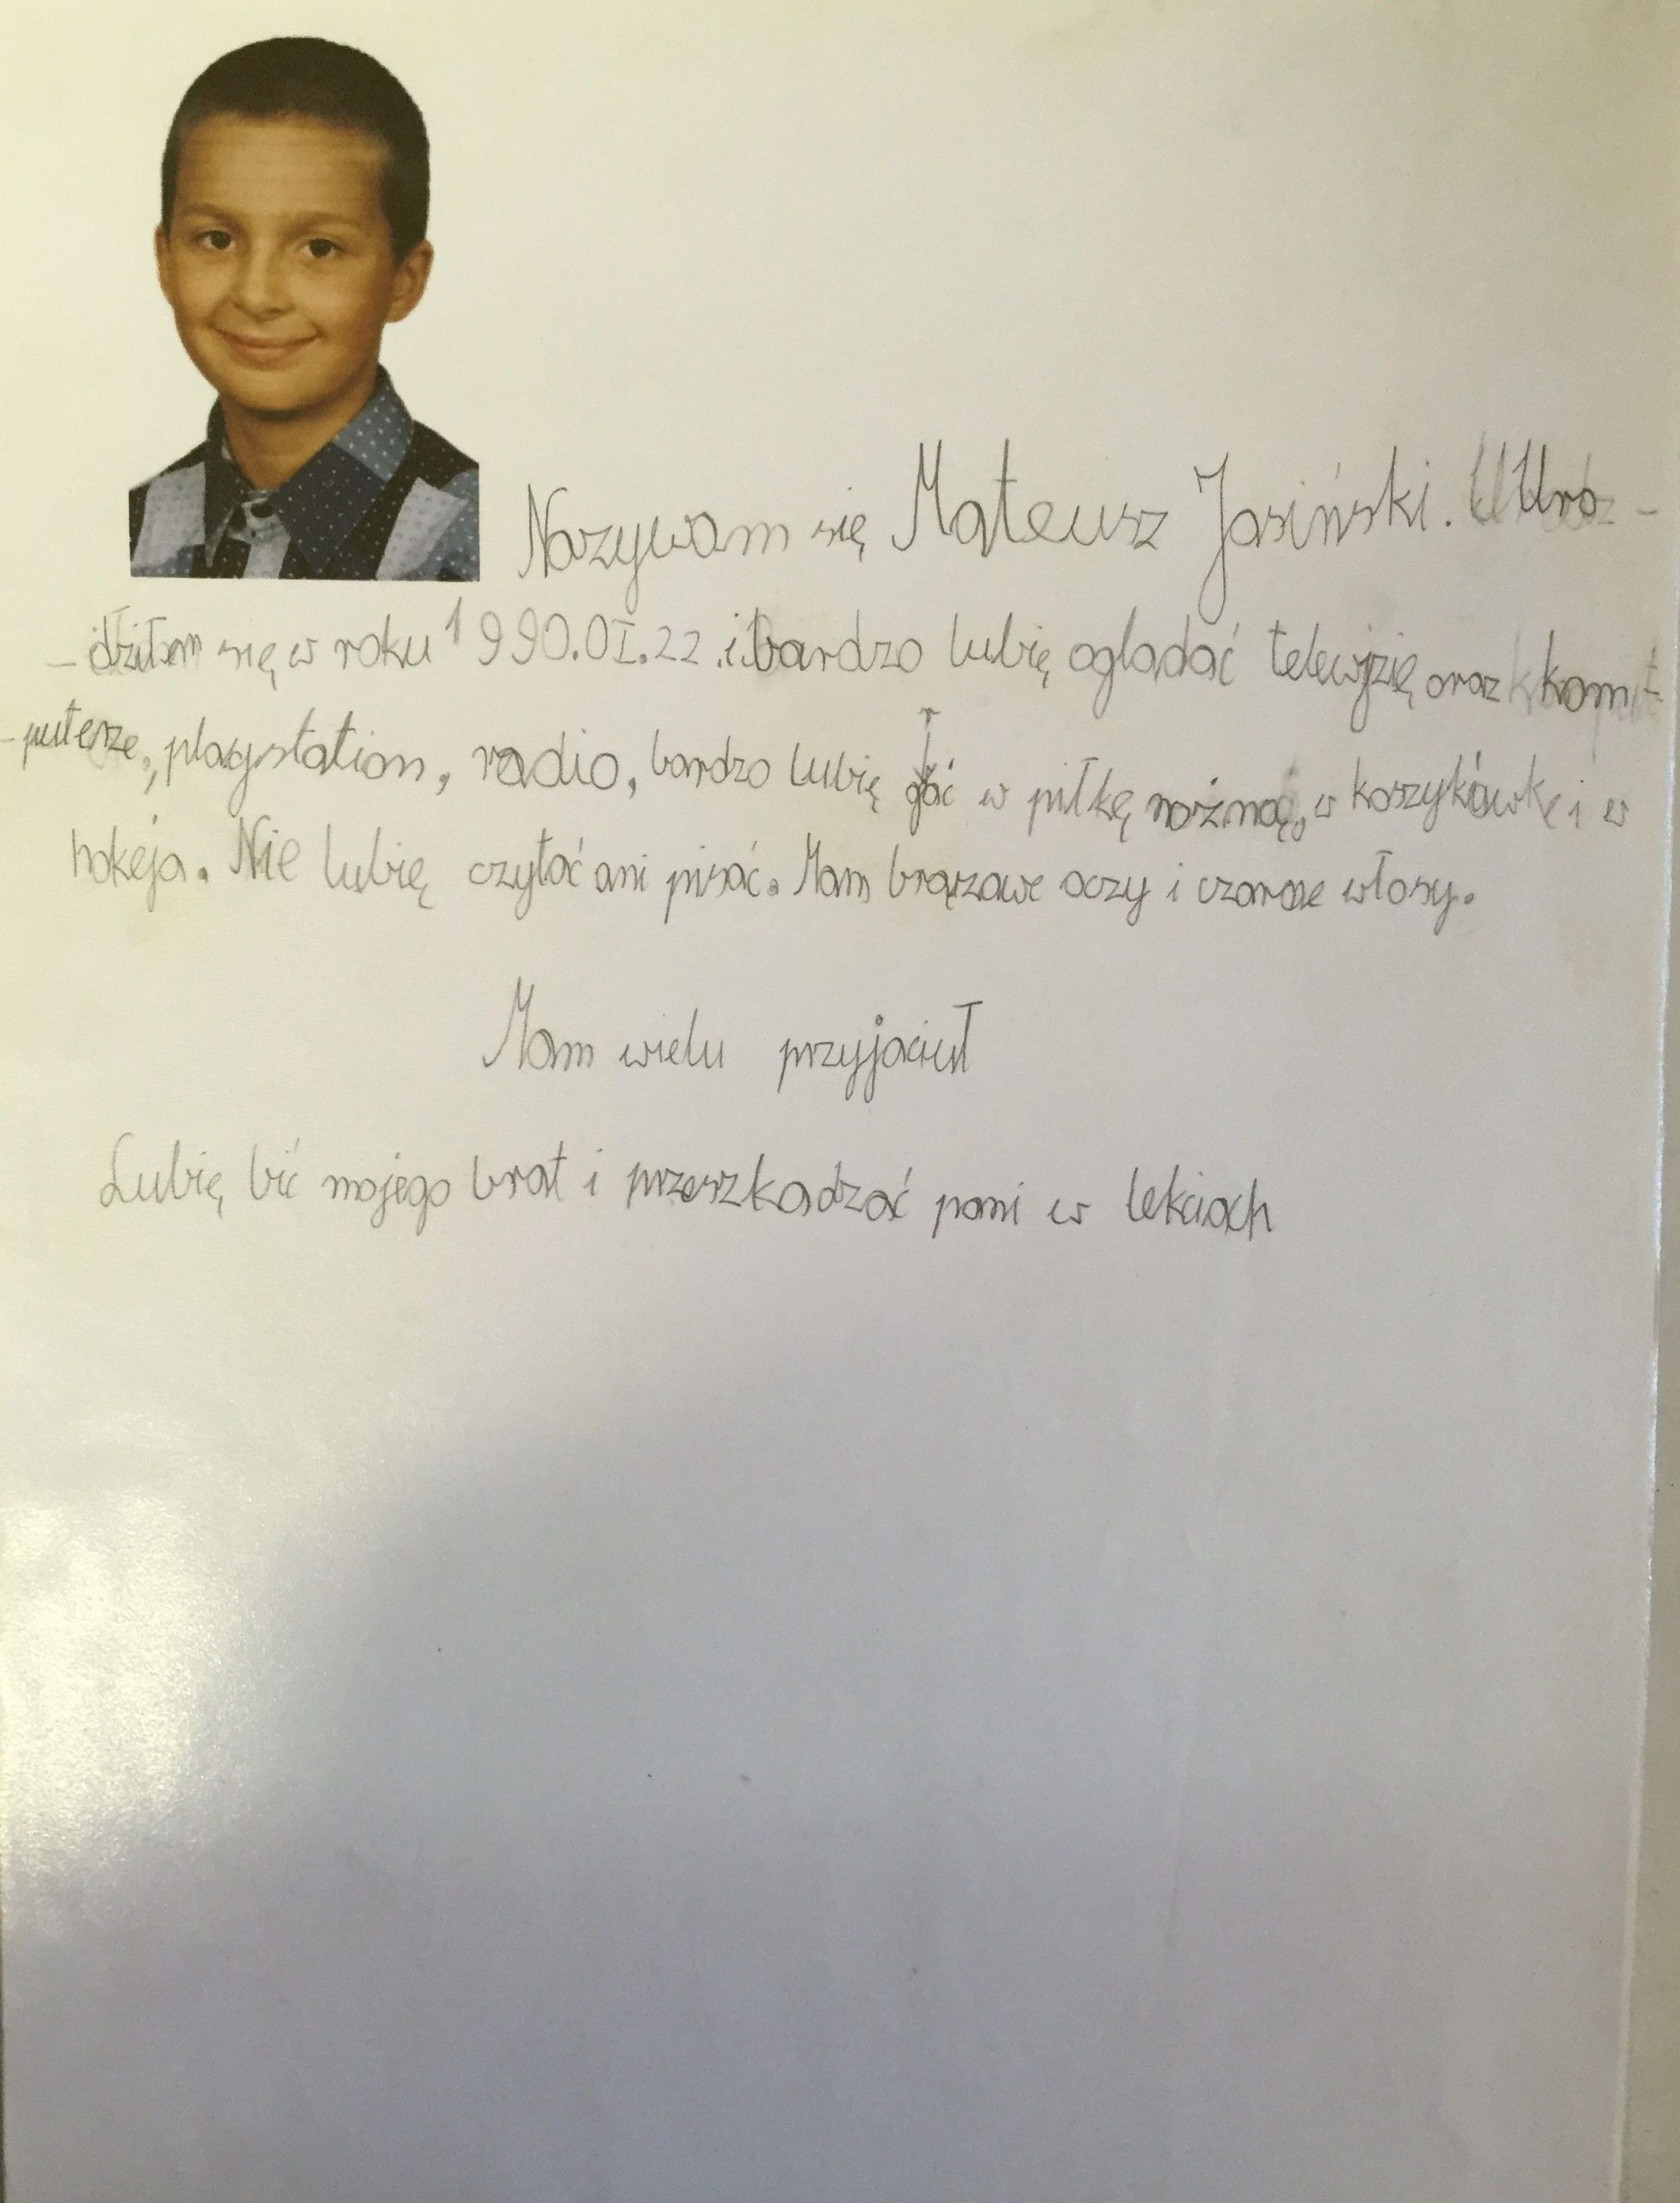 Nazywam się Mateusz Jasiński. Uro-
-dziłem się w roku 1990.01.22. i bardzo lubię ogladać telewizię oraz kom-
-puterze, playstation, radio, bardzo lubię grać w piłkę nożną, w koszykówkę i w
hokeja. Nie lubię czytać ani pisać. Mam brązowe oczy i czarne włosy.
Mam wielu przyjaciuł
Lubię bić mojego brat i przeszkadzać pani w lekciach